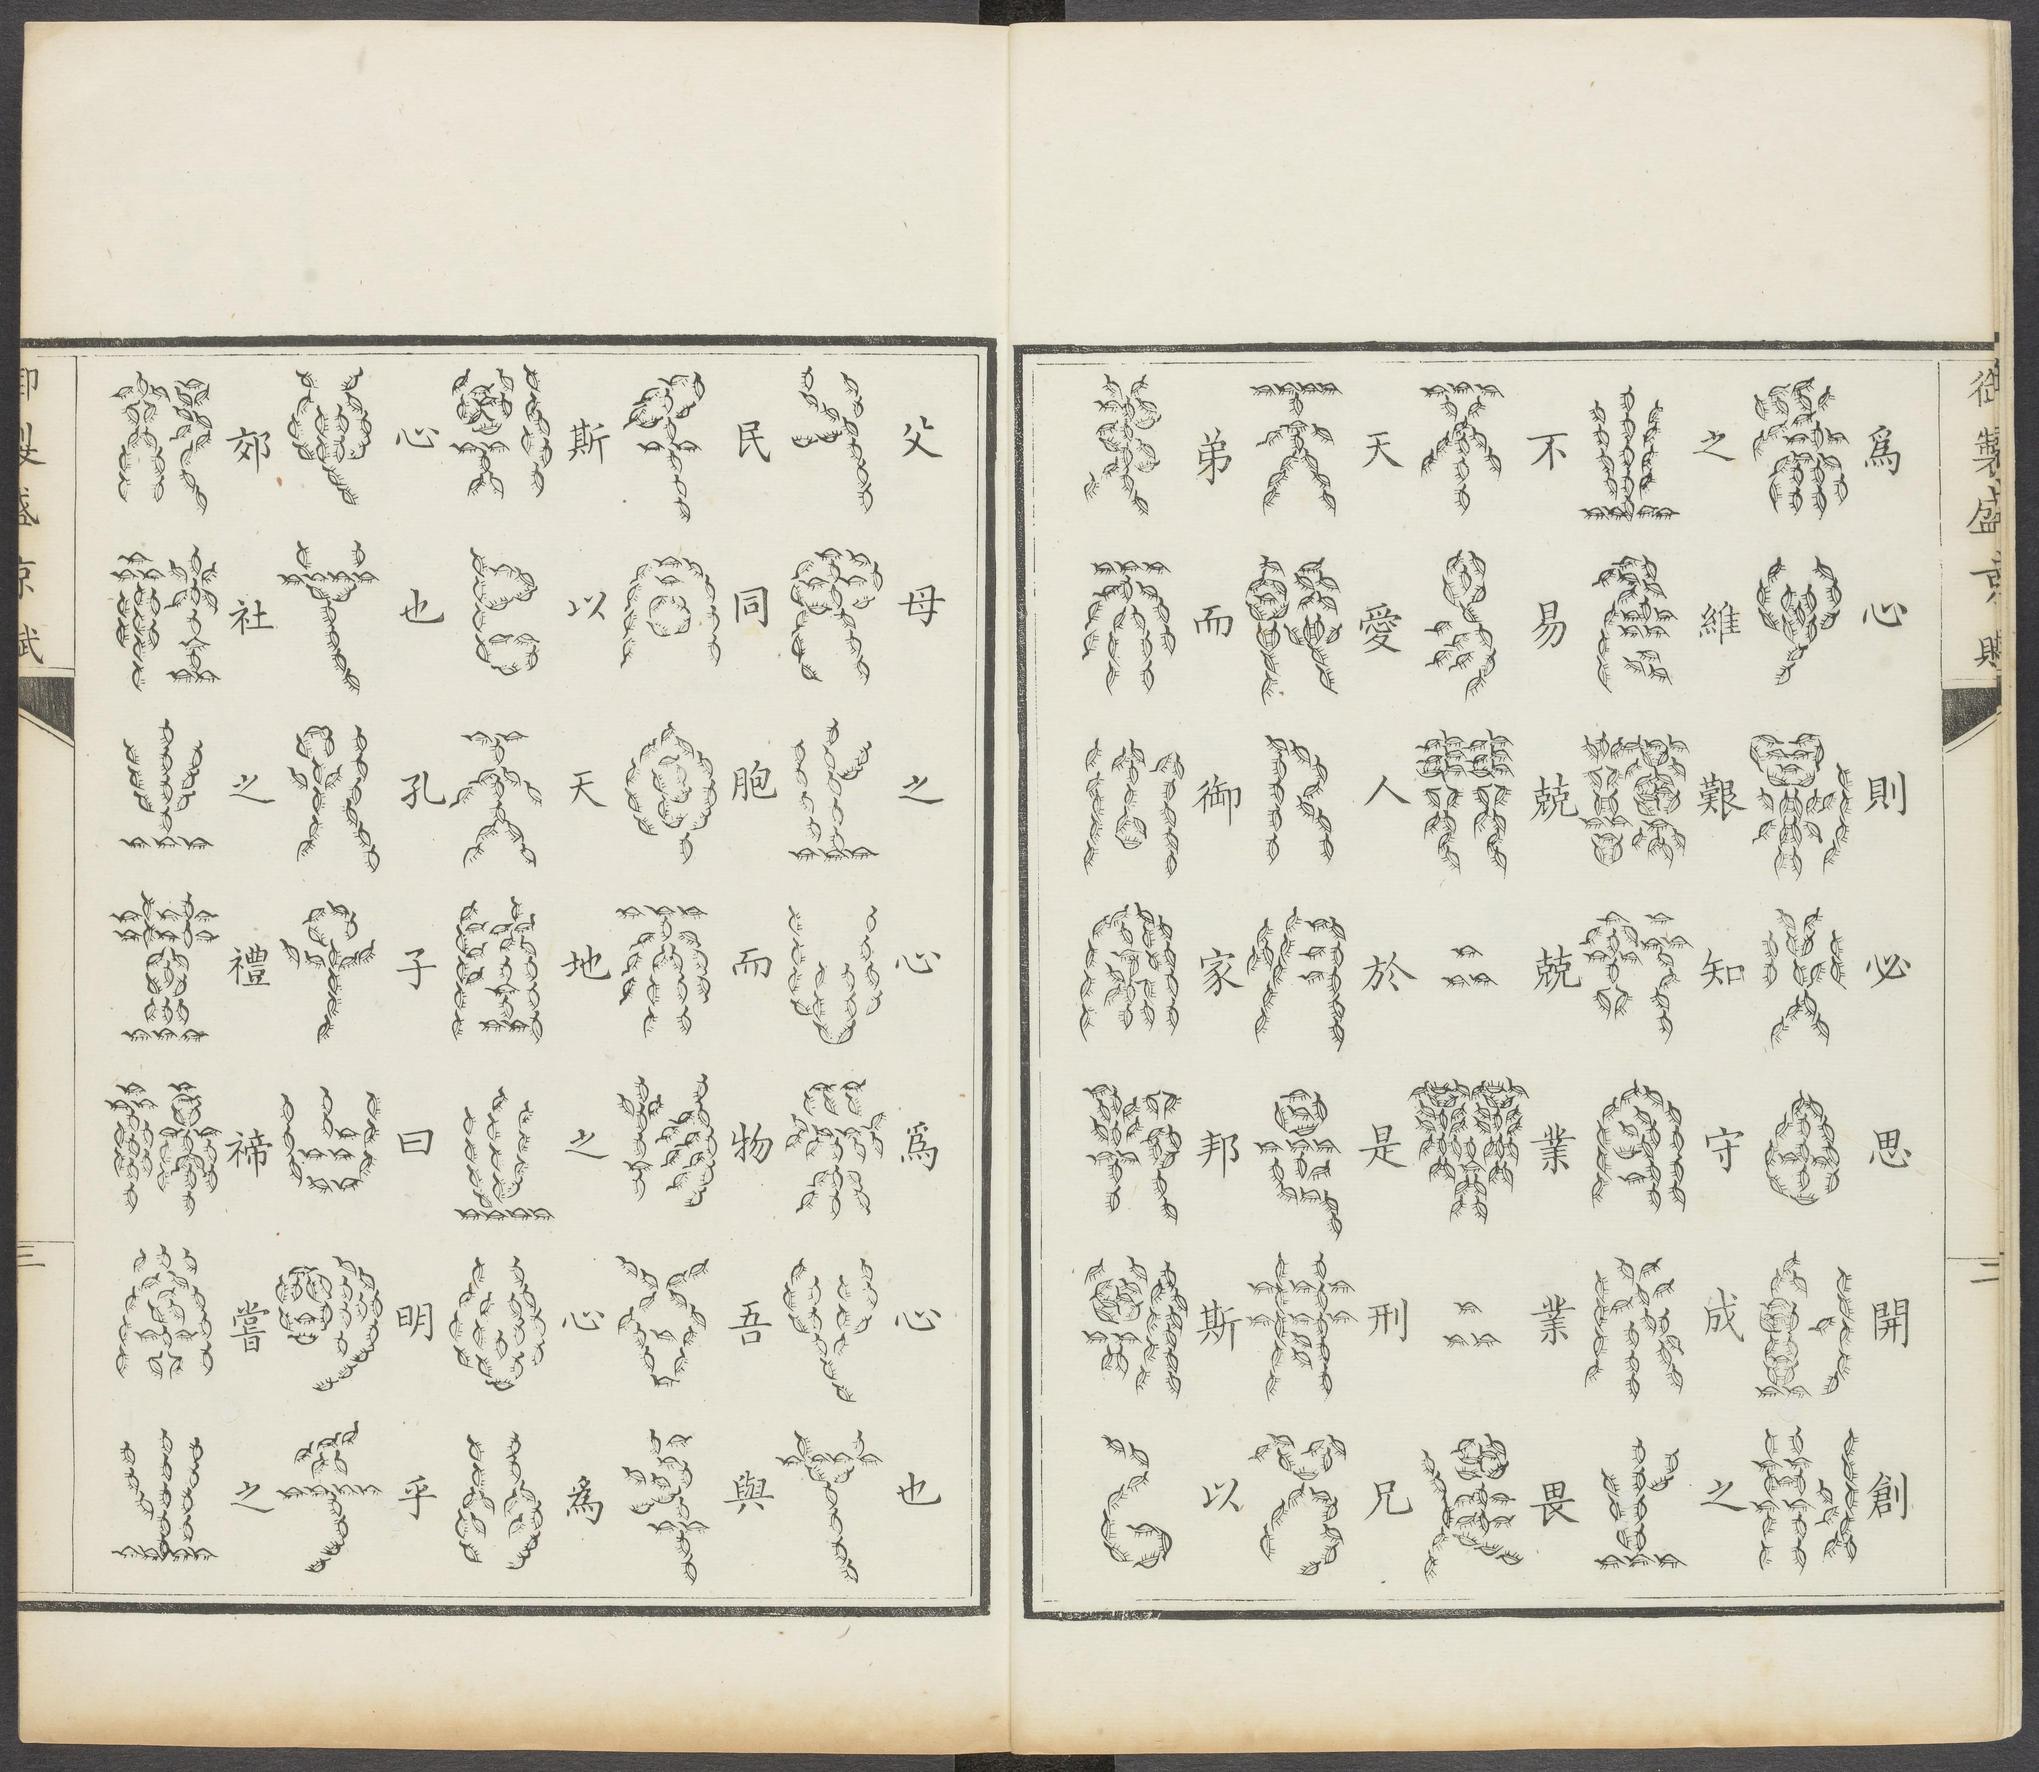 御製盛京賦
二
爲心則必思開創
之維艱知守成之
不易兢兢業業畏
天愛人於是刑兄
弟而御家邦斯以
父母之心爲心也
民同胞而物吾與
斯以天地之心爲
心也孔子曰明乎
郊社之禮禘嘗之
御製盛京賦
三